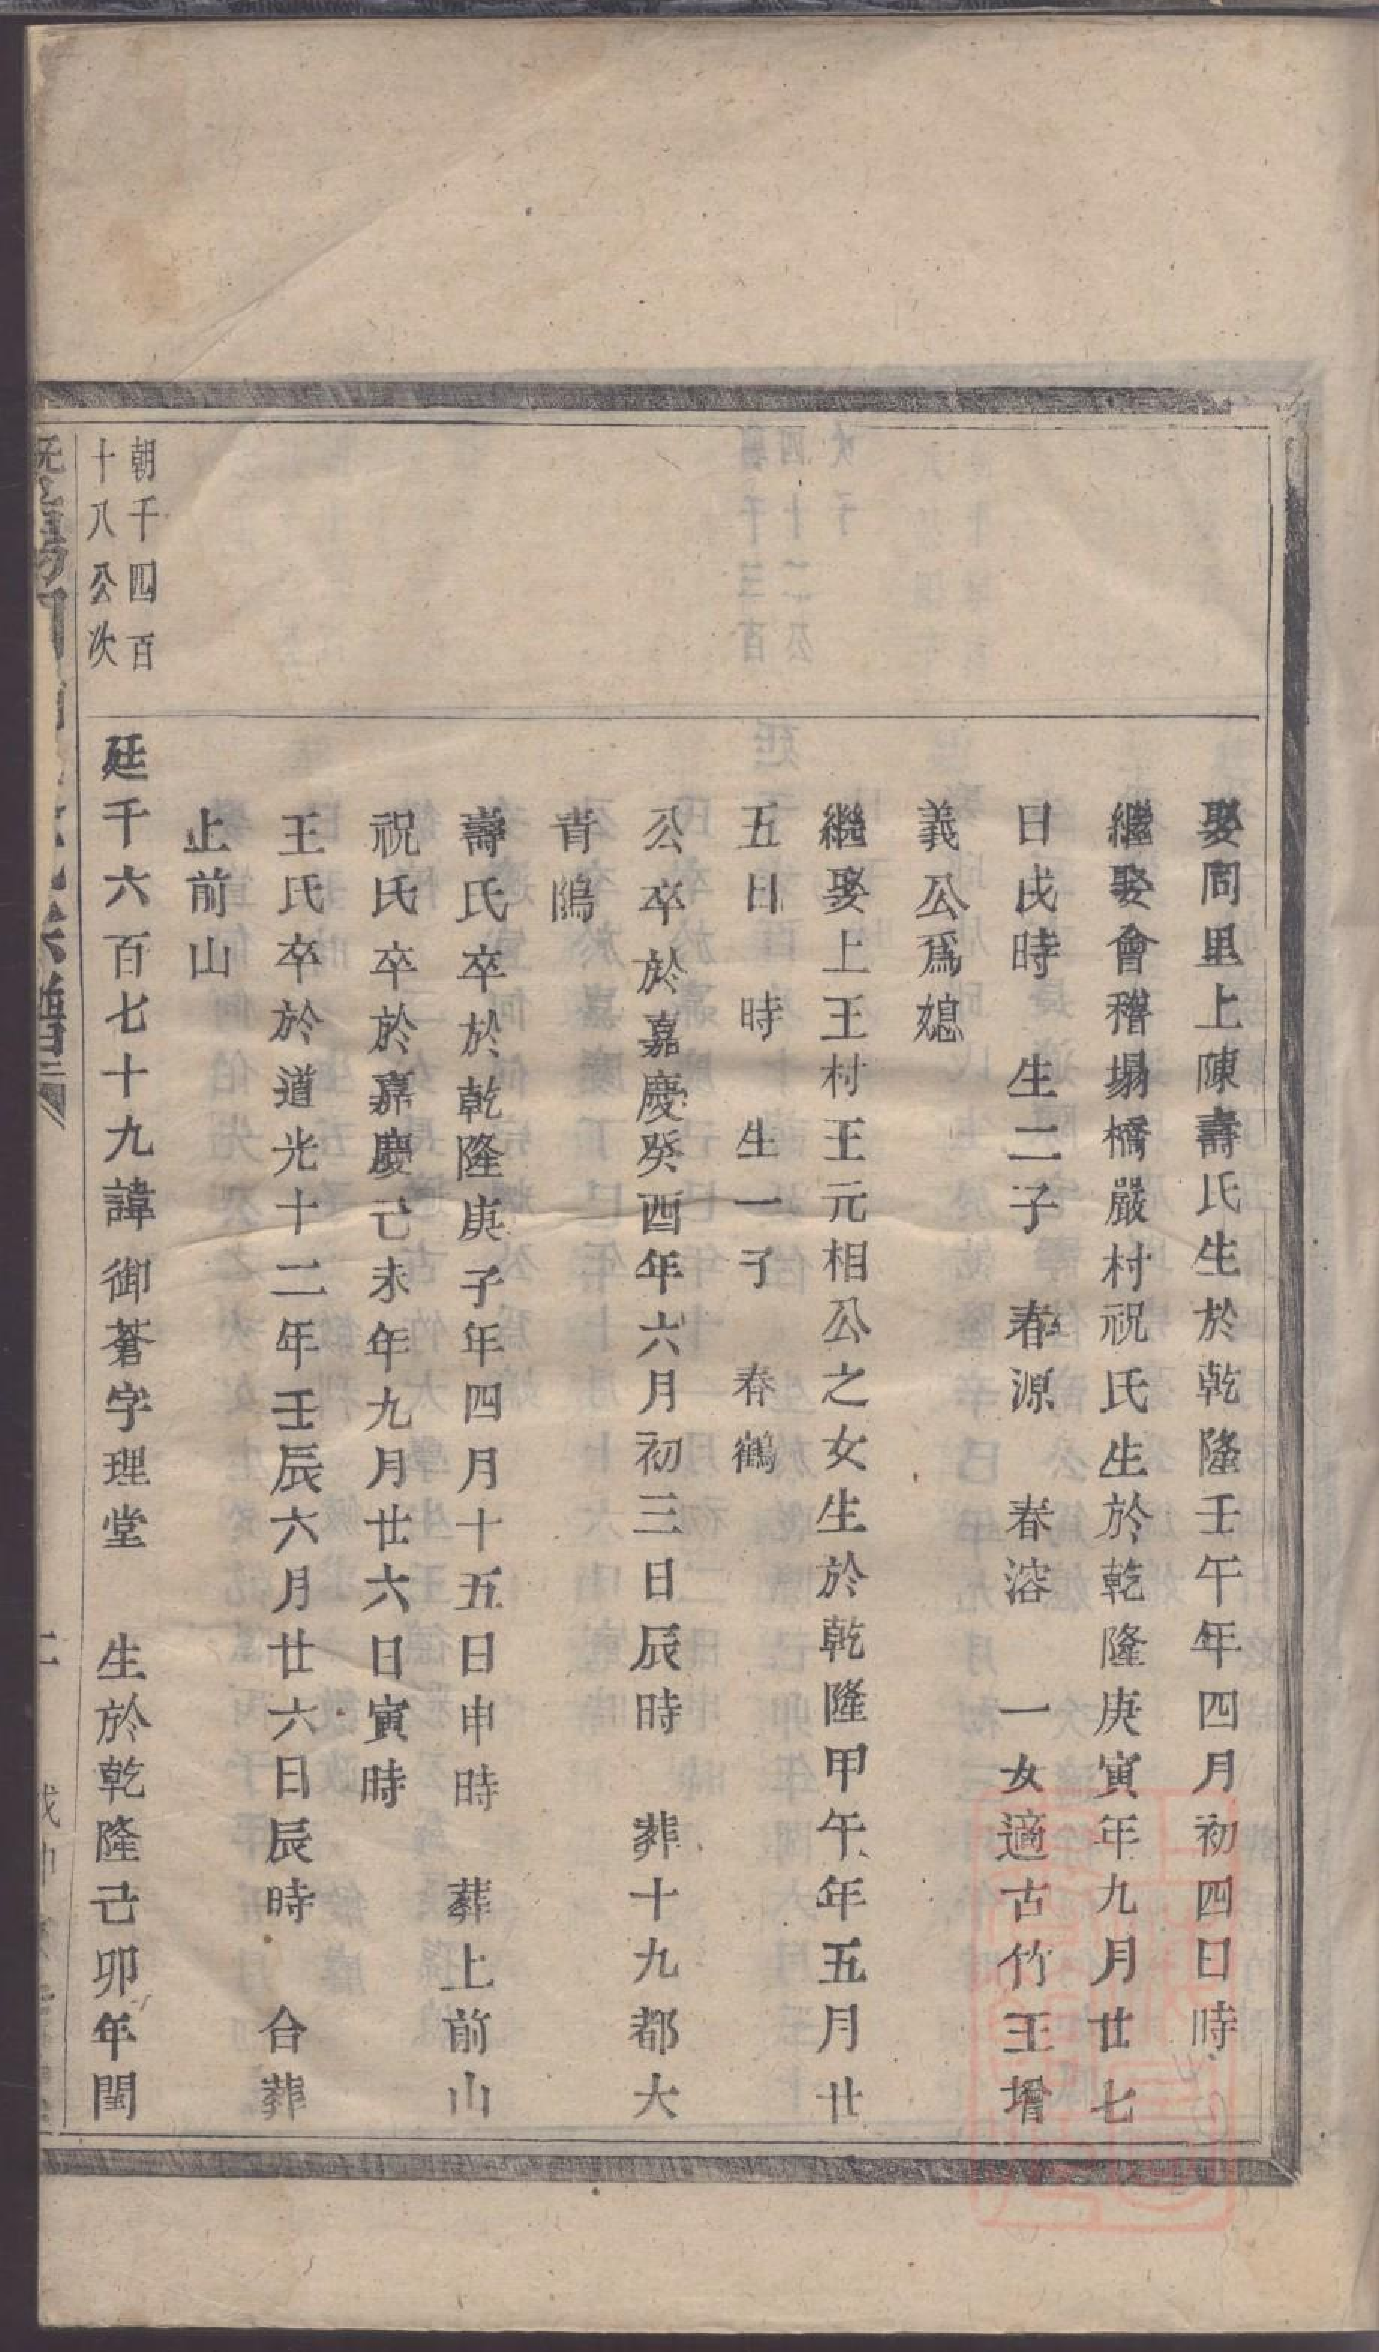 娶同里上陳壽氏生於乾隆壬午年四月初四日時
繼娶會稽塌橋嚴村祝氏生於乾隆庚寅年九月廿七
日戌時 生二子 春源 春溶 一女適古竹王增
義公爲媳
繼娶上王村王元相公之女生於乾隆甲午年五月廿
五日 時 生一子 春鶴
公卒於嘉慶癸酉年六月初三日辰時 葬十九都大
青隖
壽氏卒於乾隆庚子年四月十五日申時 葬上前山
祝氏卒於嘉慶己未年九月廿六日寅時
王氏卒於道光十二年壬辰六月廿六日辰時 合葬
止前山
朝千四百
十八公次
廷千六百七十九諱御蒼字理堂 生於乾隆己卯年閏